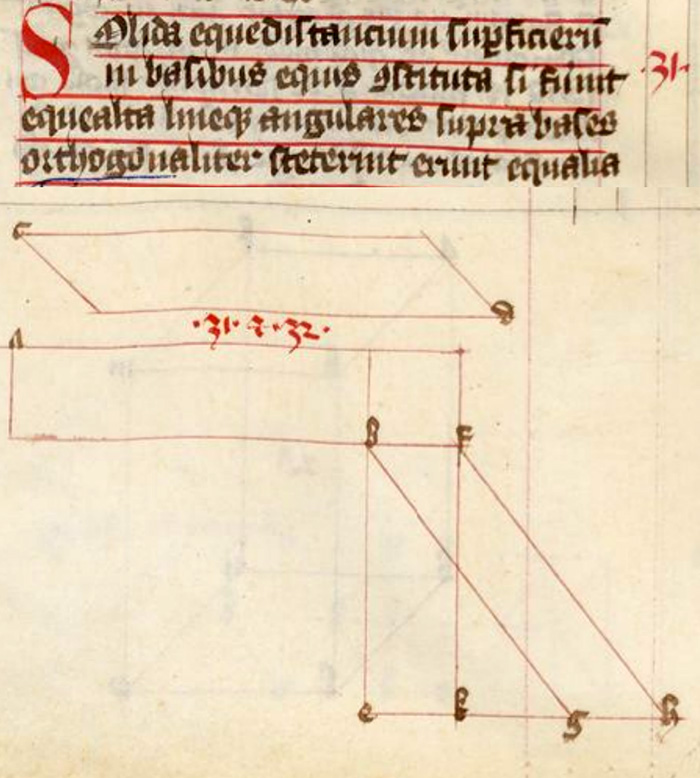 Solida equedistancium suꝑficierū
in basibus equis ꝯstituta si fu͛int
equealta lineqꝫ angulares supra bases
orthogonaliter steterint erunt equalia
·31·
c
d
·31· ⁊ ·32·
a
b f
e k g h